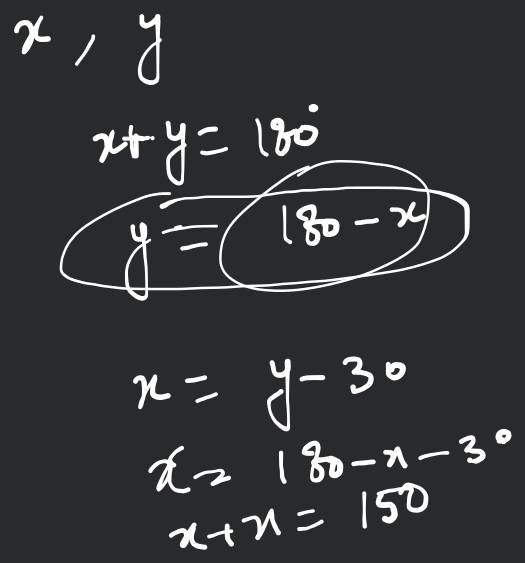 x, y
x+y= 180°
y = 180-x
x = y-30
x= 180-x-30
x+x= 150